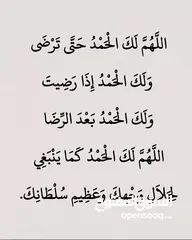 اللَّهُمَّ لَكَ الْحَمْدُ حَتَّى تَرْضَى
وَلَكَ الْحَمْدُ إِذَا رَضِيتَ
وَلَكَ الْحَمْدُ بَعْدَ الرِّضَا
اللَّهُمَّ لَكَ الْحَمْدُ كَمَا يَنْبَغِي
لِجَلَالِ وَجْهِكَ وَعَظِيمِ سُلْطَانِكَ.